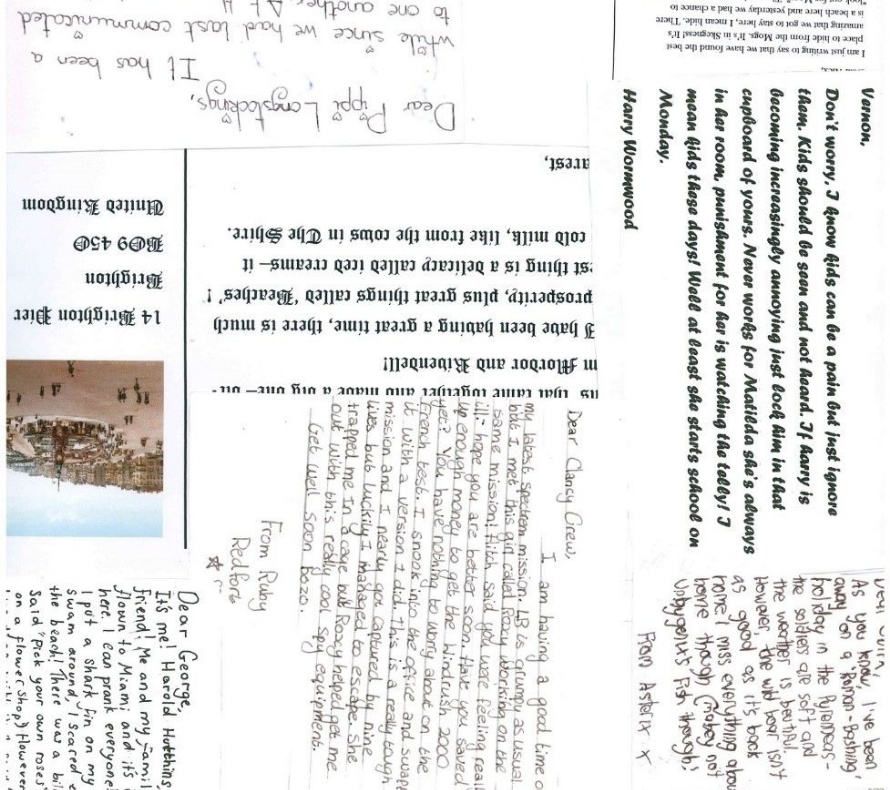 Dear Pippi Longstockings,
It has been a
while since we had last communicated
to one another.
I am just writing to say that we have found the best
place to hide from the Mogs. It's in Skegness! It's
amazing that we got to stay here, I mean hide. There
is a beach here and yesterday we had a chance to
Vernon,
Don't worry, I know kids can be a pain but just ignore
them. Kids should be seen and not heard. If harry is
becoming increasingly annoying just lock him in that
cupboard of yours. Never works for Matilda she's always
in her room, punishment for her is watching the telly! I
mean kids these days! Well at least she starts school on
Monday.
Harry Wormwood
arest,
cold milk, like from the cows in The Shire.
est thing is a delicacy called iced creams– it
prosperity, plus great things called 'Beaches' !
I have been having a great time, there is much
m Mordor and Rivendell!
us that came together and made a big one–
14 Brighton Pier
Brighton
BC09 45C
United Kingdom
Dear Clancy Crew,
I am having a good time o
my latest spectrem mission. LB is grumpy as usual
but I met this girl called Roxy working on the
same mission! Hitch said you were feeling reall
ill:- hope you are better soon. Have you saved
up enough money to get the Windrush 2000
yet? You have nothing to worry about on the
French test. I snook into the office and swapp
it with a version I did. This is a really tough
mission and I nearly got captured by nine
lives but luckily I managed to escape. She
trapped me in a cage but Roxy helped get me
out with this really cool spy equipment.
Get well soon Bozo.
From Ruby
Redfort
Dear George,
It's me! Harold Hutchins,
friend! Me and my famil
flown to Miami and it's
here. I can prank everyone!
I put a shark fin on my
swam around, I scared e
the beach! There was a bi
Said "Pick your own roses"
on a flower shop) However
As you know, I've been
away on a Roman-bashing,
holiday in the Pyrenees-
the soldiers are soft and
the weather is beautiful.
However, the wild boar isn't
as good as it's back
home. I miss everything abou
home though, (maybe not
Unhygenix's fish though)
From Asterix x